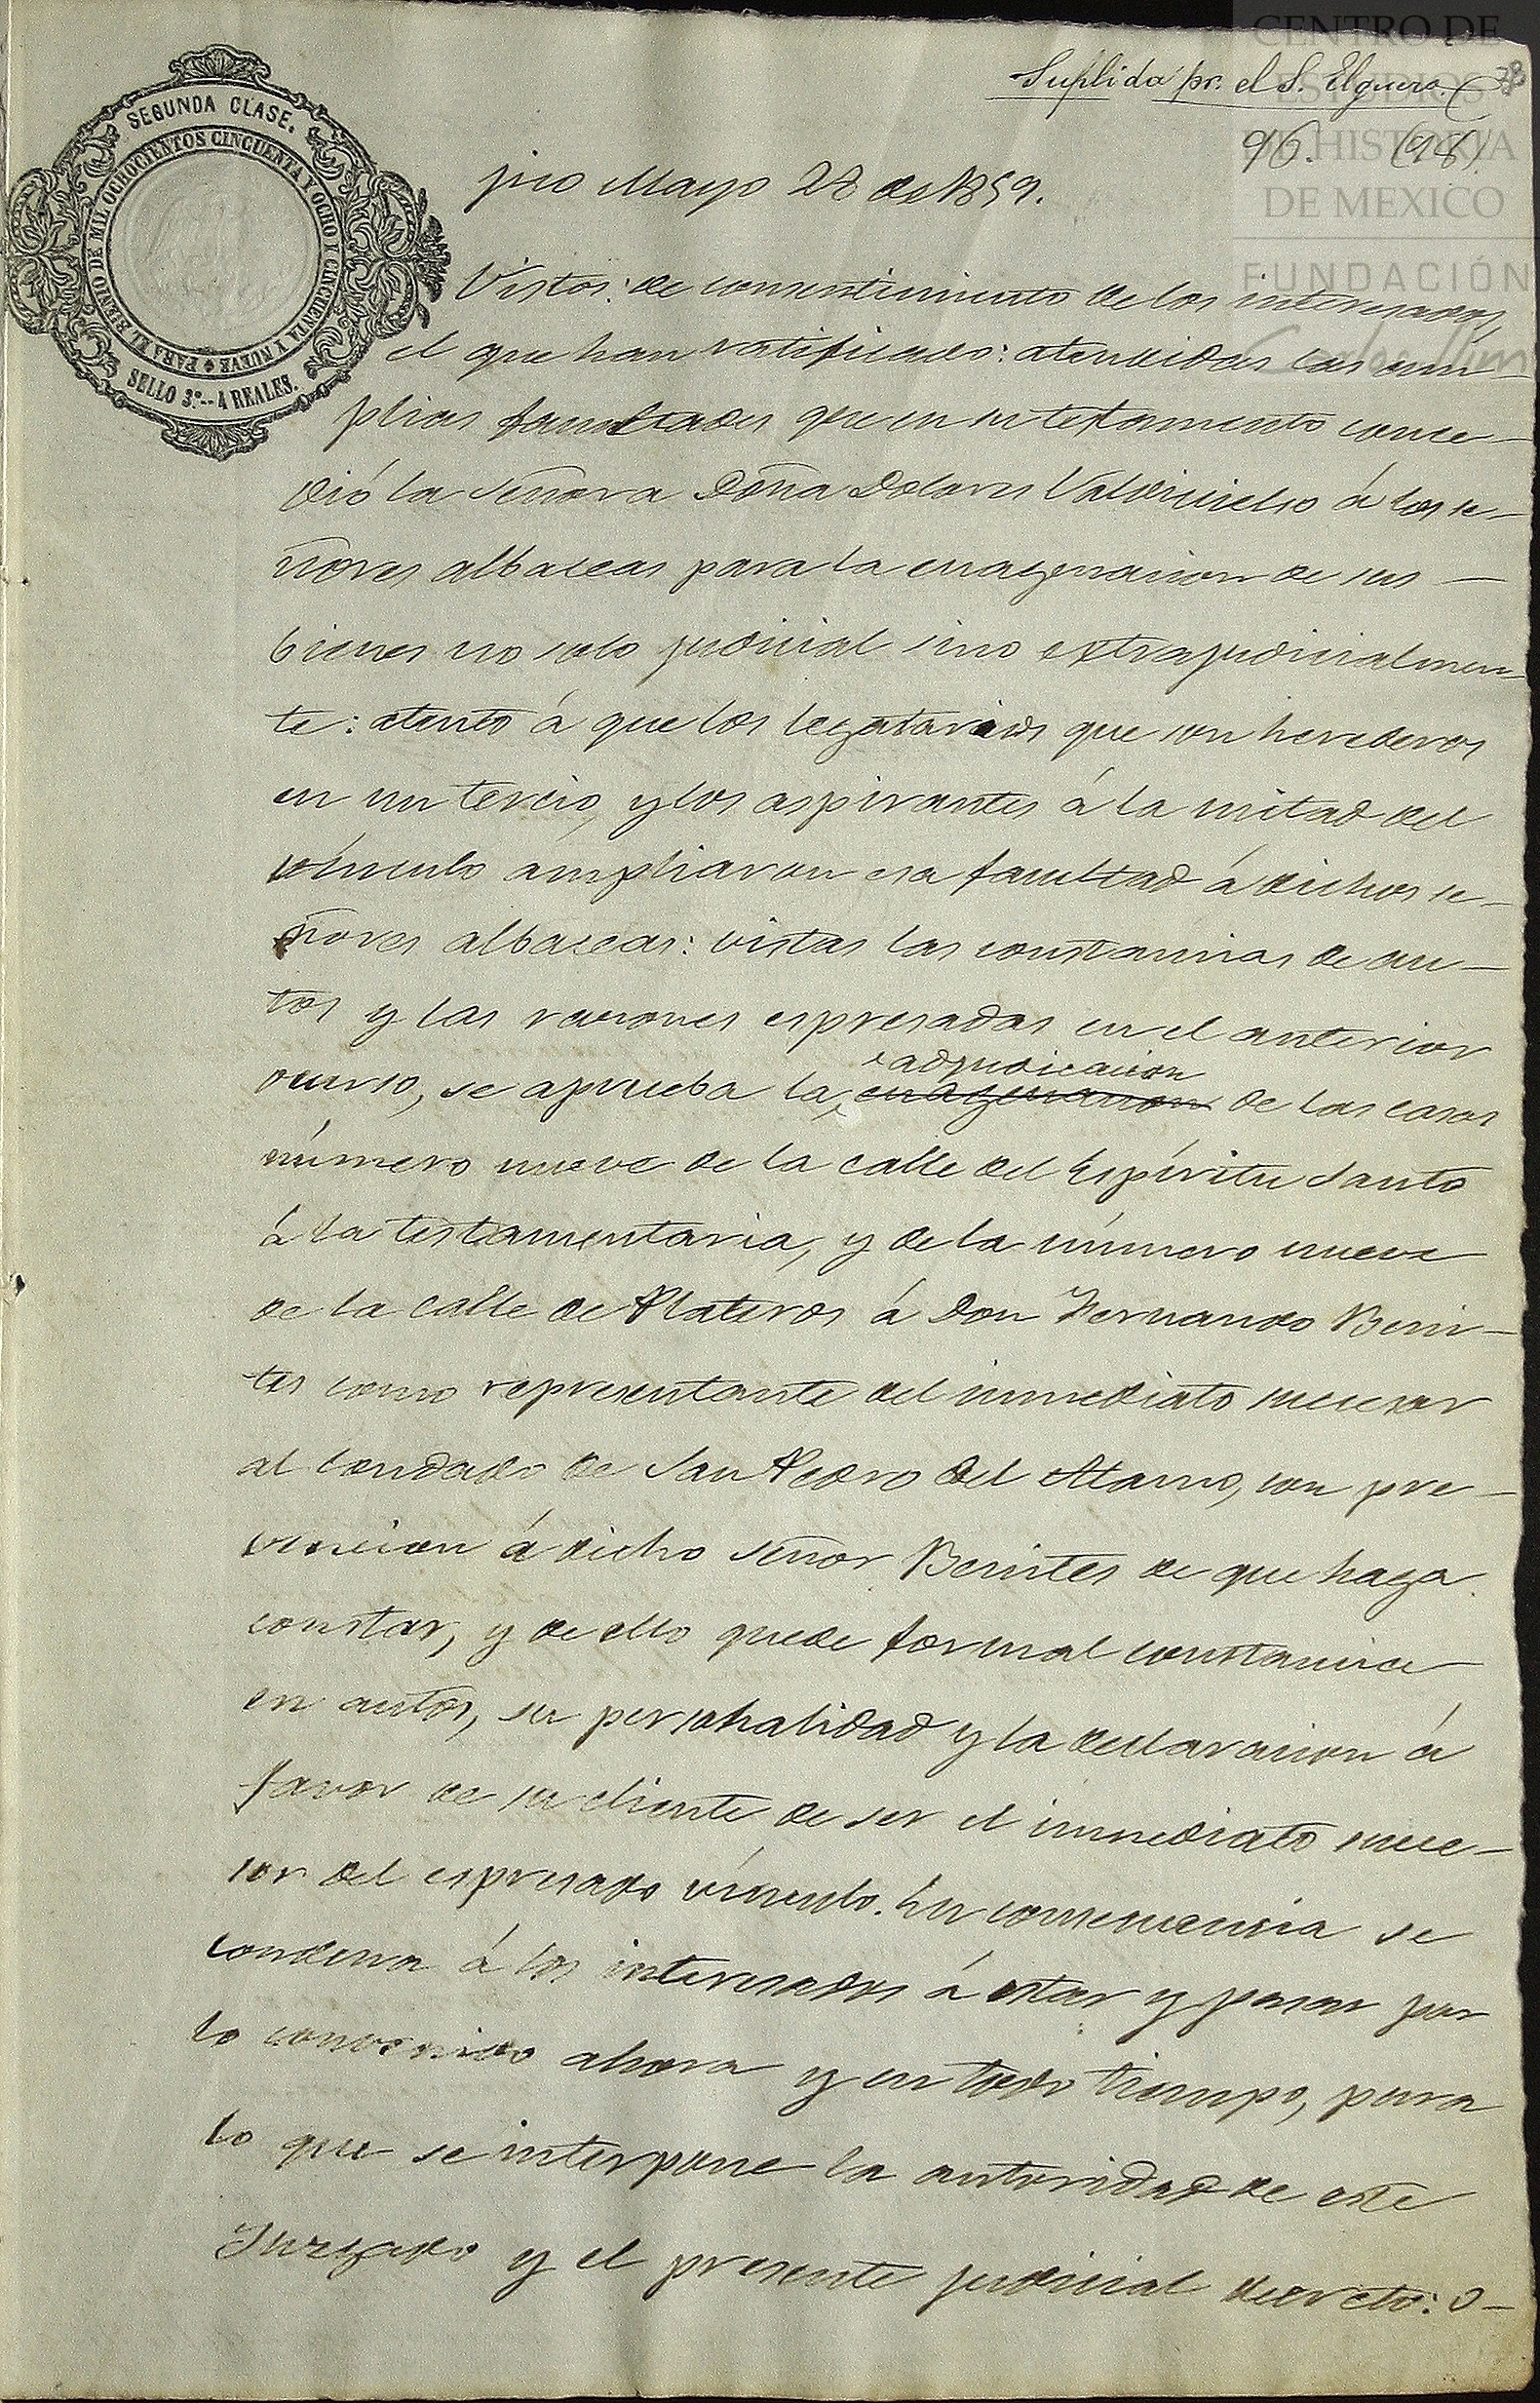 CENTRO DE
ESTUDIOS
DE HISTORIA
DE MEXICO
FUNDACIÓN
Suplida pr. el S. Elguero.
96. (98)
SEGUNDA CLASE.
PARA EL BIENIO DE MIL OCHOCIENTOS CINCUENTA Y OCHO Y CINCUENTA Y NUEVE
SELLO 3.º--4 REALES.
Mayo 28 de 1859.
Vistos: de consentimiento de los interesados,
el que han ratificado: atendidas las am-
plias facultades que en su testamento conce-
dió la señora Doña Dolores Valdivielso á los se-
ñores albaceas para la enagenacion de sus
bienes no solo judicial sino extrajudicialmen-
te: atento á que los legatarios que son herederos
en un tercio, y los aspirantes á la mitad del
vínculo ampliaron esa facultad á dichos se-
ñores albaceas: vistas las constancias de au-
tos y las razones espresadas en el anterior
adjudicacion
ocurso, se aprueba la enagenacion de las casas
número nueve de la calle del Espíritu Santo
á la testamentaria, y de la número nueve
de la calle de Plateros á Don Fernando Beni-
tes como representante del inmediato sucesor
al Condado de San Pedro del Alamo, con pre-
vencion á dicho señor Benites de que haga
constar, y de ello quede formal constancia
en autos, su personalidad y la declaracion á
favor de su cliente de ser el inmediato suce-
sor del espresado vínculo. En consecuencia se
condena á los interesados á estar y pasar por
lo convenido ahora y en todo tiempo, para
lo que se interpone la autoridad de este
Juzgado y el presente judicial decreto: o-